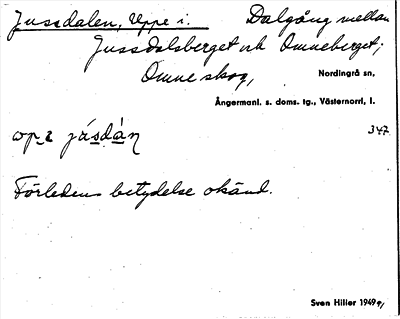 Jussdalen, Uppe i. Dalgång mellan
Jussdalsberget och Omneberget;
Omne skog, Nordingrå sn,
Ångermanl. s. doms. tg., Västernorrl, l.
347
Förledens betydelse okänd.
Sven Hiller 1949